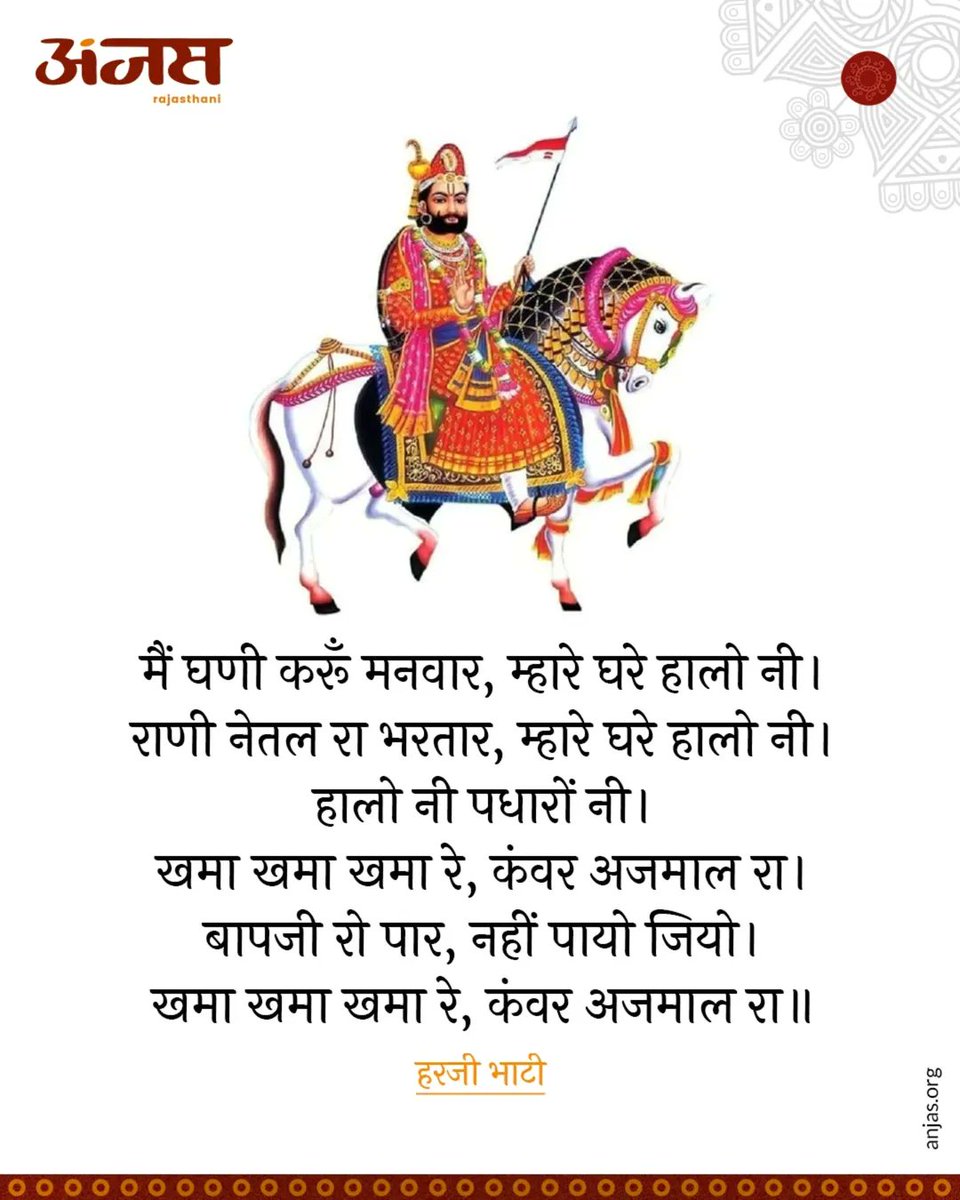 अंजस
rajasthani
मैं घणी करूँ मनवार, म्हारे घरे हालो नी।
राणी नेतल रा भरतार, म्हारे घरे हालो नी।
हालो नी पधारों नी।
खमा खमा खमा रे, कंवर अजमाल रा।
बापजी रो पार, नहीं पायो जियो।
खमा खमा खमा रे, कंवर अजमाल रा॥
हरजी भाटी
anjas.org